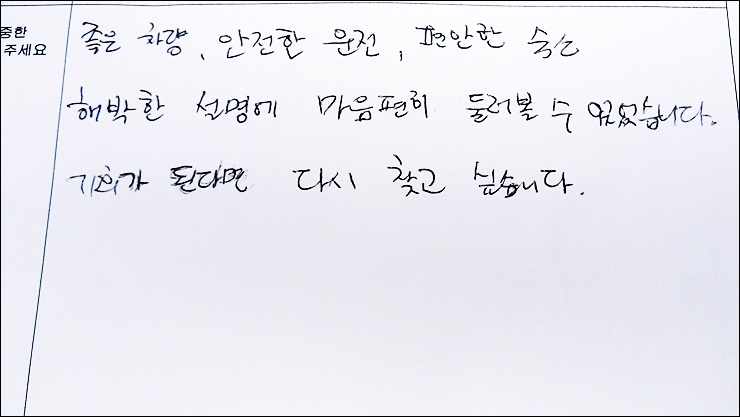 중한
주세요
좋은 차량, 안전한 운전, 편안한 숙소
해박한 설명에 마음편히 둘러볼 수 있었습니다.
기회가 된다면 다시 찾고 싶습니다.